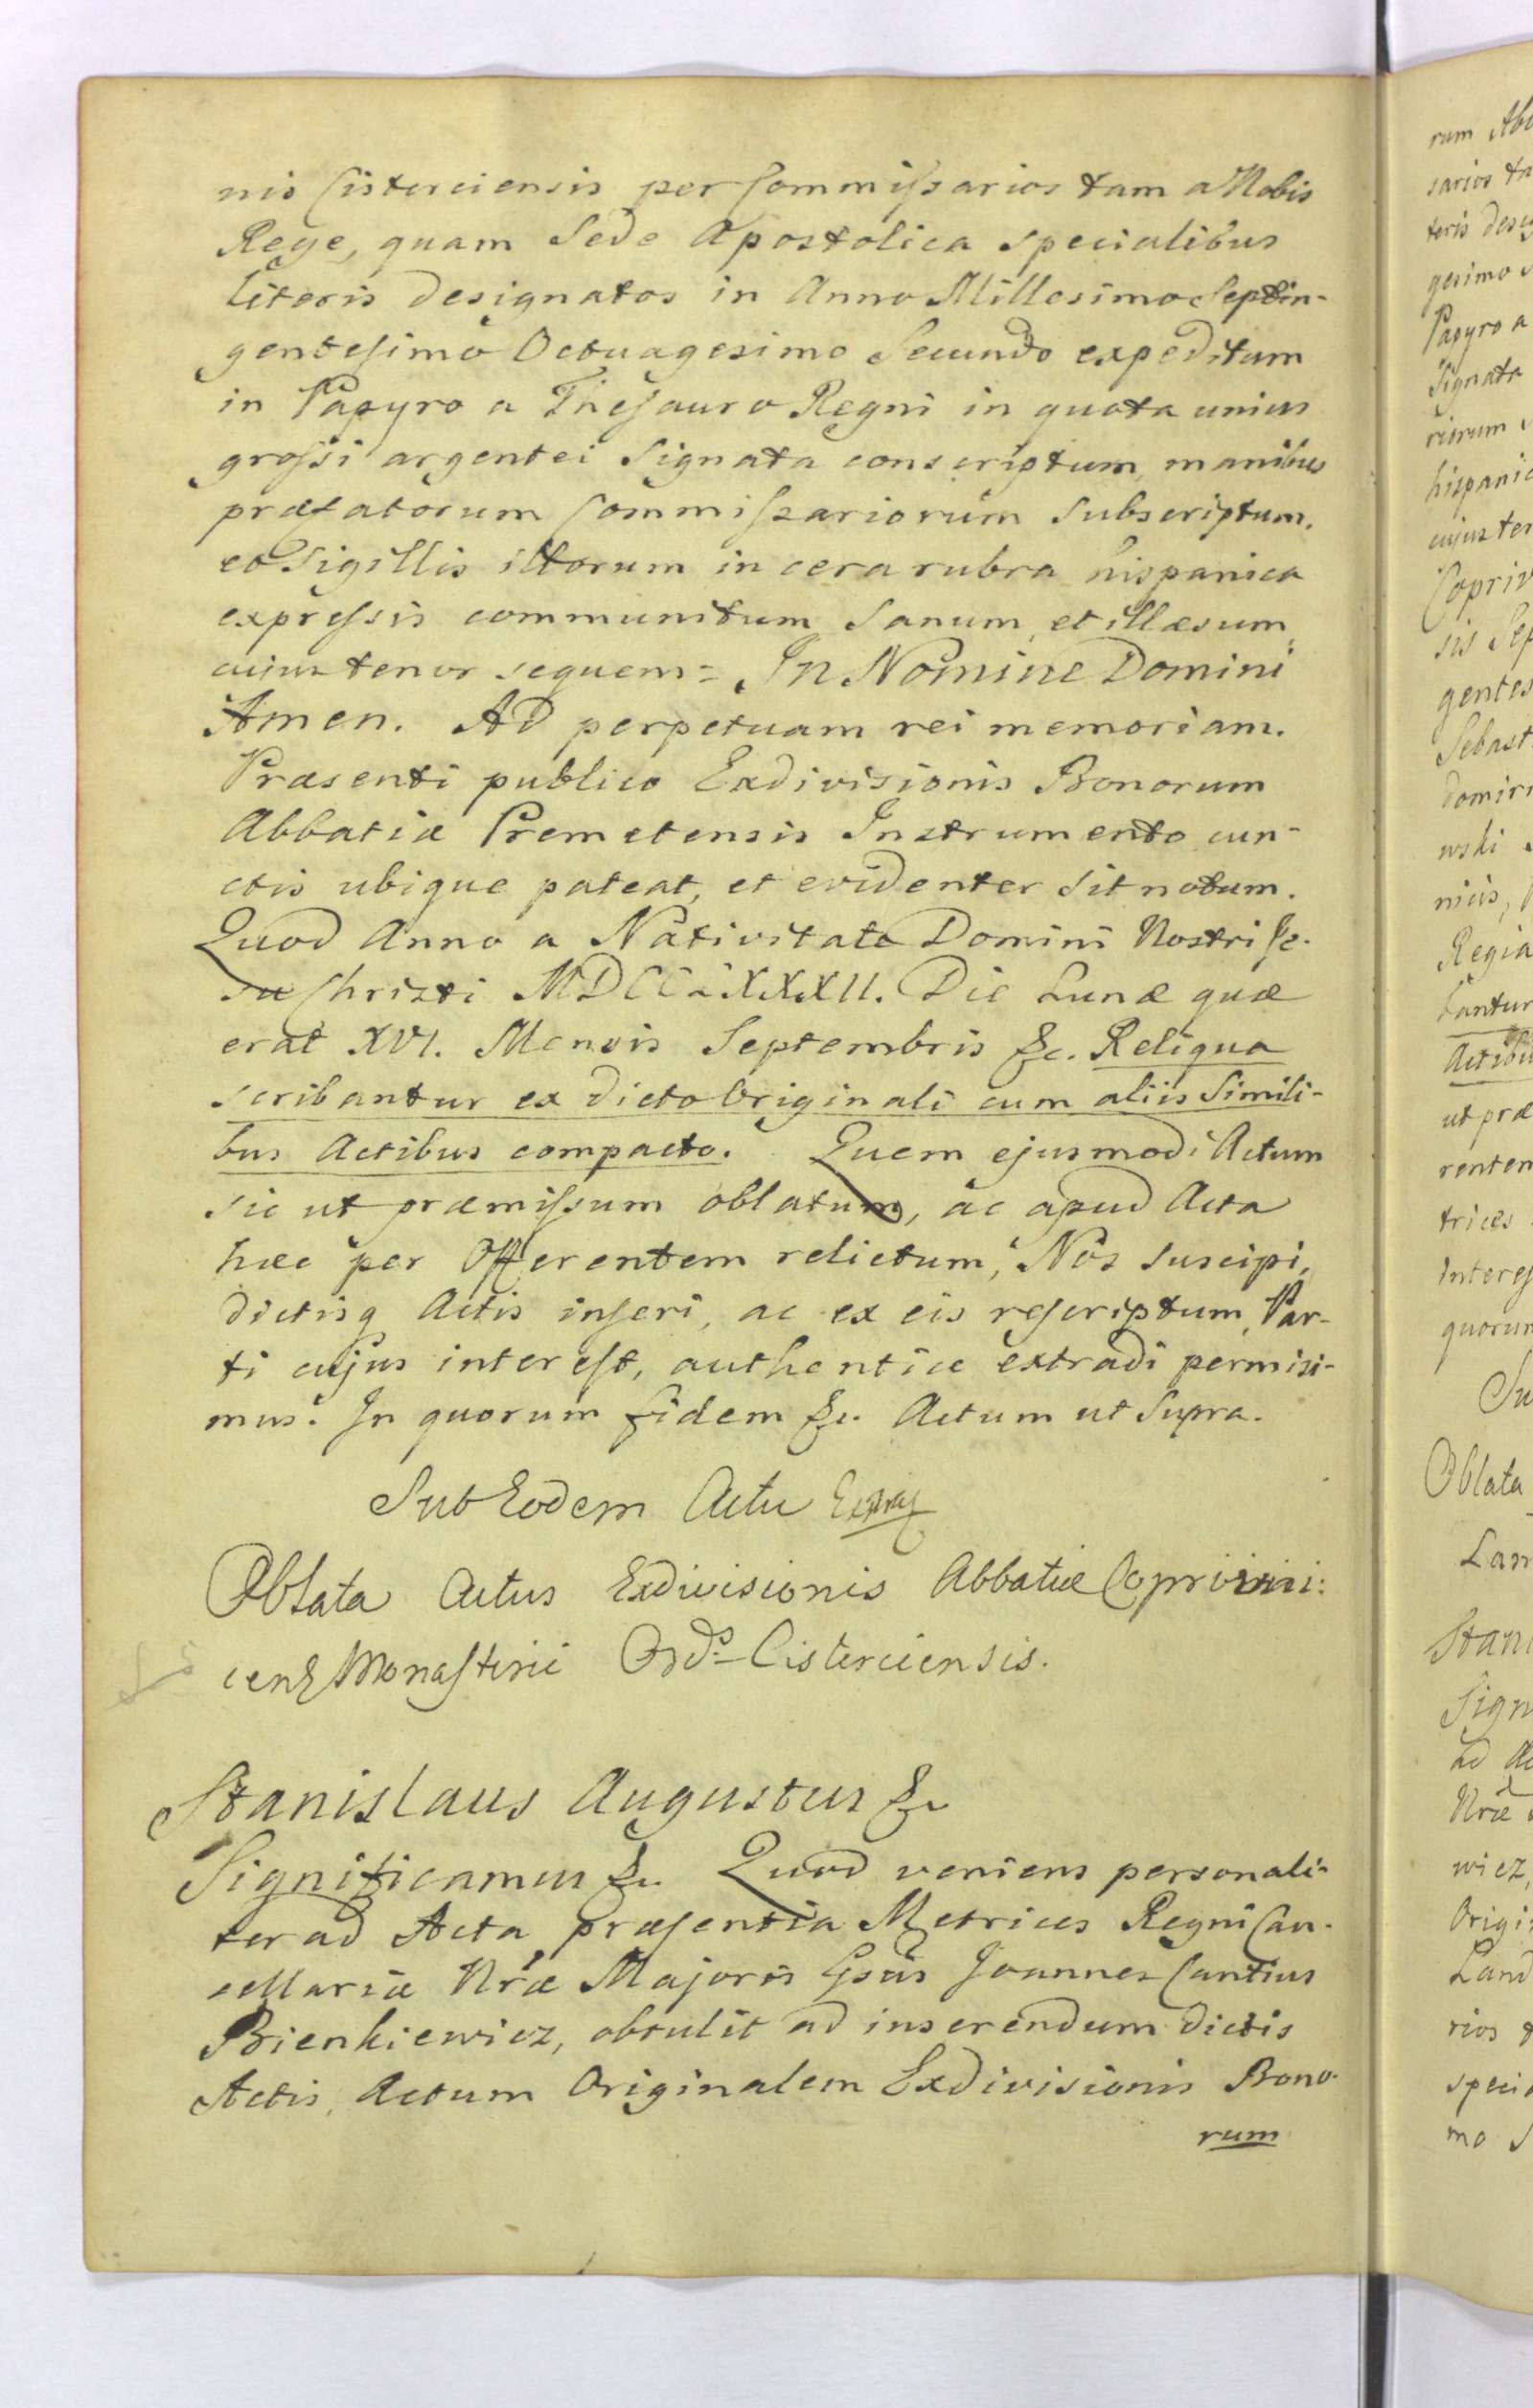 nis Cisterciensis per Commissarios tam a Nobis
Rege, quam Sede Apostolica specialibus
literis designatos in Anno Millesimo Septin-
gentesimo Octuagesimo Secundo expeditum
in Papyro a Thesauro Regni in quota unius
grossi argentei Signata conscriptum, manibus
præfatorum Commissariorum Subscriptum.
et Sigillis illorum in cera rubra hispanica
expressis communitum Sanum, et illæsum,
cujus tenor sequens = In Nomine Domini
Amen. Ad perpetuam rei memoriam.
Præsenti publico Exdivisionis Bonorum
Abbatiæ Premetensis Instrumento cun-
ctis ubique pateat, et evidenter sit notum.
Quod Anno a Nativitate Domini Nostri Je-
su Christi MDCCLXXXII. Die Lunæ quæ
erat XVI. Mensis Septembris &c. Reliqua
scribantur ex dicto Originali cum aliis Simili-
bus Actibus compacto. Quem ejusmodi Actum
sic ut præmissum oblatum, ac apud Acta
hæc per Offerentem relictum, Nos suscipi,
dictisq Actis inseri, ac ex eis rescriptum, Par-
ti cujus interest, authentice extradi permisi-
mus. In quorum fidem &c. Actum ut Supra.
Sub Eodem Actu
Oblata Actus Exdivisionis Abbatiæ Coprivni:
cens Monasterii Ordis Cisterciensis.
Stanislaus Augustus &c
Significamus &c. Quod veniens personali-
ter ad Acta præsentia Metrices Regni Can-
cellariæ Nræ Majoris Gsus Joannes Cantius
Bienkiewicz, obtulit ad inserendum dictis
Actis, Actum Originalem Exdivisionis Bono-
rum
rum
sarios
teris
gesimo
Papyro a
Signata
riorum
hispanic
cujus ter
Copriv
sis Sep
gentes
Sebast
domini
wski
nicis,
Regia
tantur
Actibu
ut præ
renten
trices
Interes
quorum
Su
Oblata
Lan
Stani
Sign
ad Ac
Nræ
wicz,
Origi
Land
rios
speci
mo S